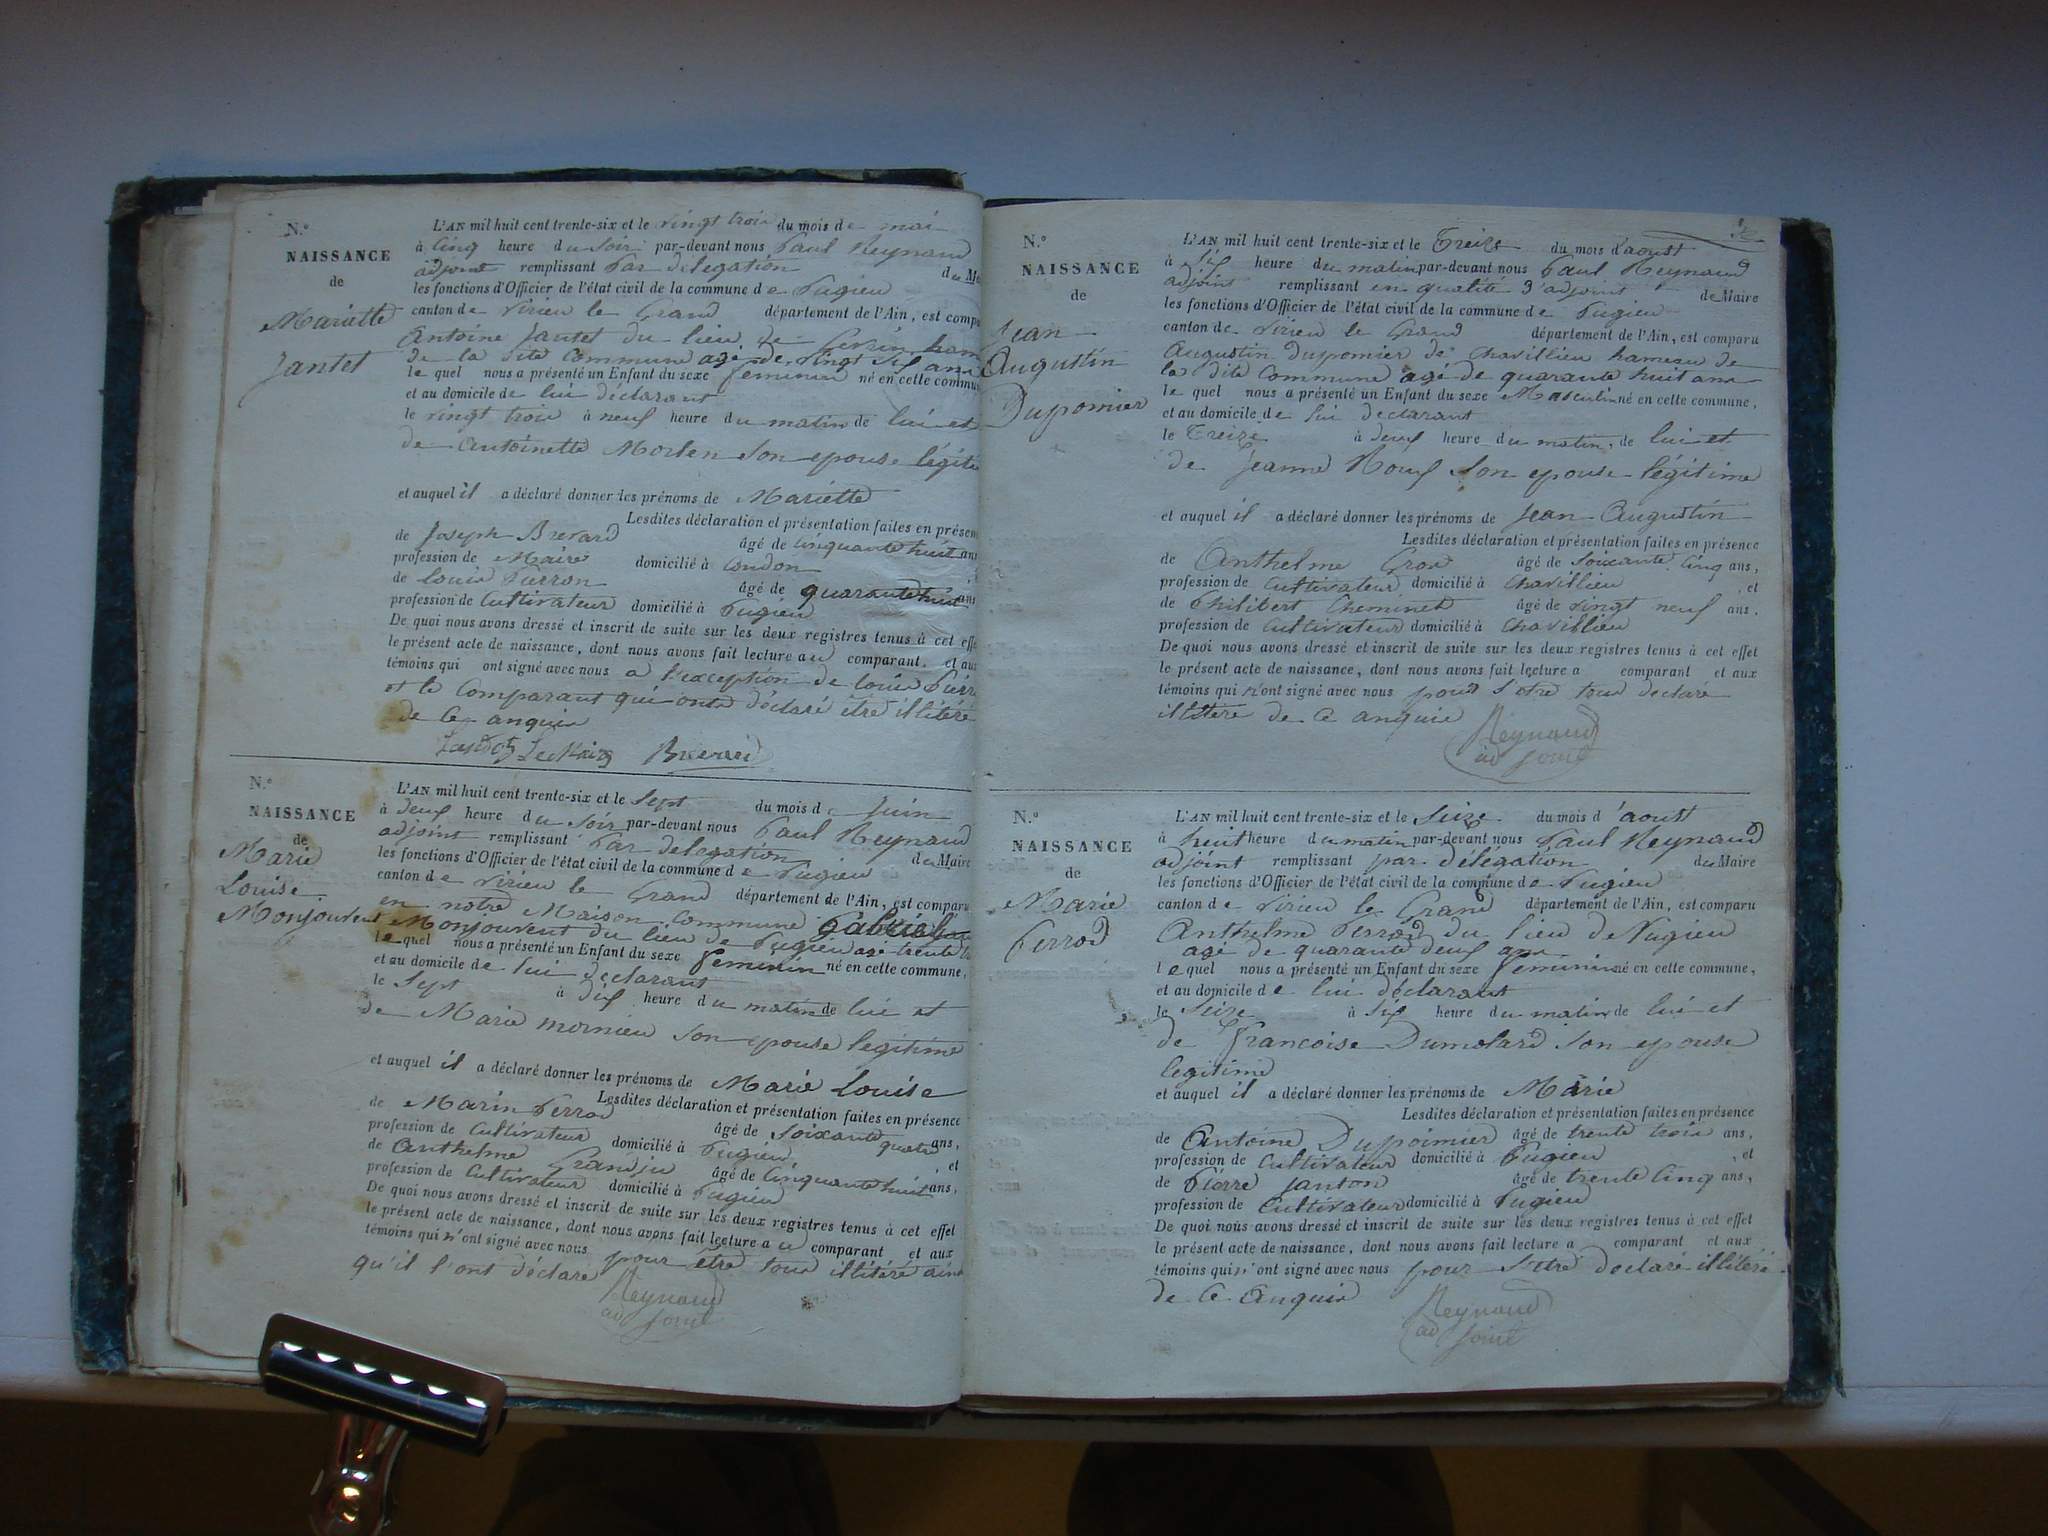 N.o
NAISSANCE
de
Mariette
Jantet
L'AN mil huit cent trente-six et le vingt trois du mois de mai
à cinq heure du soir par-devant nous Paul Reynaud
adjoint remplissant par delegation du
les fonctions d'Officier de l'état civil de la commune de Pugieu
canton de Virieu le Grand département de l'Ain, est
Antoine Jantet du lieu de
de la dite commune agé de vingt six ans
le quel nous a présenté un Enfant du sexe feminin né en cette
et au domicile de lui déclarant
le vingt trois à neuf heure du matin de lui et
de Antoinette son epouse
et auquel il a déclaré donner les prénoms de Mariette
Lesdites déclaration et présentation faites en
de Joseph Brerard âgé de cinquante huit ans
profession de Maire domicilié à Condon
de Louis Pierron âgé de quarante huit ans
profession de Cultivateur domicilié à Pugieu
De quoi nous avons dressé et inscrit de suite sur les deux registres tenus à cet
le présent acte de naissance, dont nous avons fait lecture au comparant, et aux
témoins qui ont signé avec nous a l'exception de Louis
et le Comparant qui ont déclaré être illitéré
de ce anquis
Brerard
N.o
NAISSANCE
de
Marie
Louise
Monjouvent
L'AN mil huit cent trente-six et le Sept du mois de Juin
à deux heure du soir par-devant nous Paul Reynaud
adjoint remplissant par delegation du Maire
les fonctions d'Officier de l'état civil de la commune de Pugieu
canton de Virieu le Grand département de l'Ain, est comparu
en notre Maison commune Gabriel
Monjouvent du lieu de Pugieu agé trente
le quel nous a présenté un Enfant du sexe feminin né en cette commune,
et au domicile de lui déclarant
le Sept à dix heure du matin de lui et
de Marie mornieu son epouse legitime
et auquel il a déclaré donner les prénoms de Marie Louise
Lesdites déclaration et présentation faites en présence
de Marin Perrod âgé de soixante quatre ans,
profession de Cultivateur domicilié à Pugieu, et
de Anthelme âgé de cinquante huit ans,
profession de Cultivateur domicilié à Pugieu
De quoi nous avons dressé et inscrit de suite sur les deux registres tenus à cet effet
le présent acte de naissance, dont nous avons fait lecture au comparant et aux
témoins qui n'ont signé avec nous pour être tous illitéré
qu'il l'ont déclaré
Reynaud
adjoint
N.o
NAISSANCE
de
Jean
Augustin
Dupomier
L'AN mil huit cent trente-six et le Treize du mois d'aoust
à six heure du matin par-devant nous Paul Reynaud
adjoint remplissant en qualité d'adjoint de Maire
les fonctions d'Officier de l'état civil de la commune de Pugieu
canton de Virieu le Grand département de l'Ain, est comparu
Augustin Dupomier de Chavillieu hameau de
la dite Commune agé de quarante huit ans
le quel nous a présenté un Enfant du sexe Masculin né en cette commune,
et au domicile de lui declarant
le Treize à deux heure du matin, de lui et
de Jeanne Roux son epouse legitime
et auquel il a déclaré donner les prénoms de Jean Augustin
Lesdites déclaration et présentation faites en présence
de Anthelme Gros âgé de soixante cinq ans,
profession de Cultivateur domicilié à Chavillieu, et
de Philibert Cheminet âgé de vingt neuf ans,
profession de Cultivateur domicilié à Chavillieu
De quoi nous avons dressé et inscrit de suite sur les deux registres tenus à cet effet
le présent acte de naissance, dont nous avons fait lecture a comparant et aux
témoins qui n'ont signé avec nous pour s'etre tous declaré
illitere de ce anquis
Reynaud
adjoint
N.o
NAISSANCE
de
Marie
Perrod
L'AN mil huit cent trente-six et le Seize du mois d'aoust
à huit heure du matin par-devant nous Paul Reynaud
adjoint remplissant par délégation du Maire
les fonctions d'Officier de l'état civil de la commune de Pugieu
canton de Virieu le Grand département de l'Ain, est comparu
Anthelme Perrod du lieu de Pugieu
agé de quarante deux ans
lequel nous a présenté un Enfant du sexe feminin né en cette commune,
et au domicile de lui déclarant
le Seize à six heure du matin de lui et
de Francoise Dumolard son epouse
legitime
et auquel il a déclaré donner les prénoms de Marie
Lesdites déclaration et présentation faites en présence
de Antoine Dupoimier âgé de trente trois ans,
profession de Cultivateur domicilié à Pugieu, et
de Pierre Janton âgé de trente cinq ans,
profession de Cultivateur domicilié à Pugieu
De quoi nous avons dressé et inscrit de suite sur les deux registres tenus à cet effet
le présent acte de naissance, dont nous avons fait lecture a comparant et aux
témoins qui n'ont signé avec nous pour s'etre declaré illitéré
de ce anquis
Reynaud
adjoint